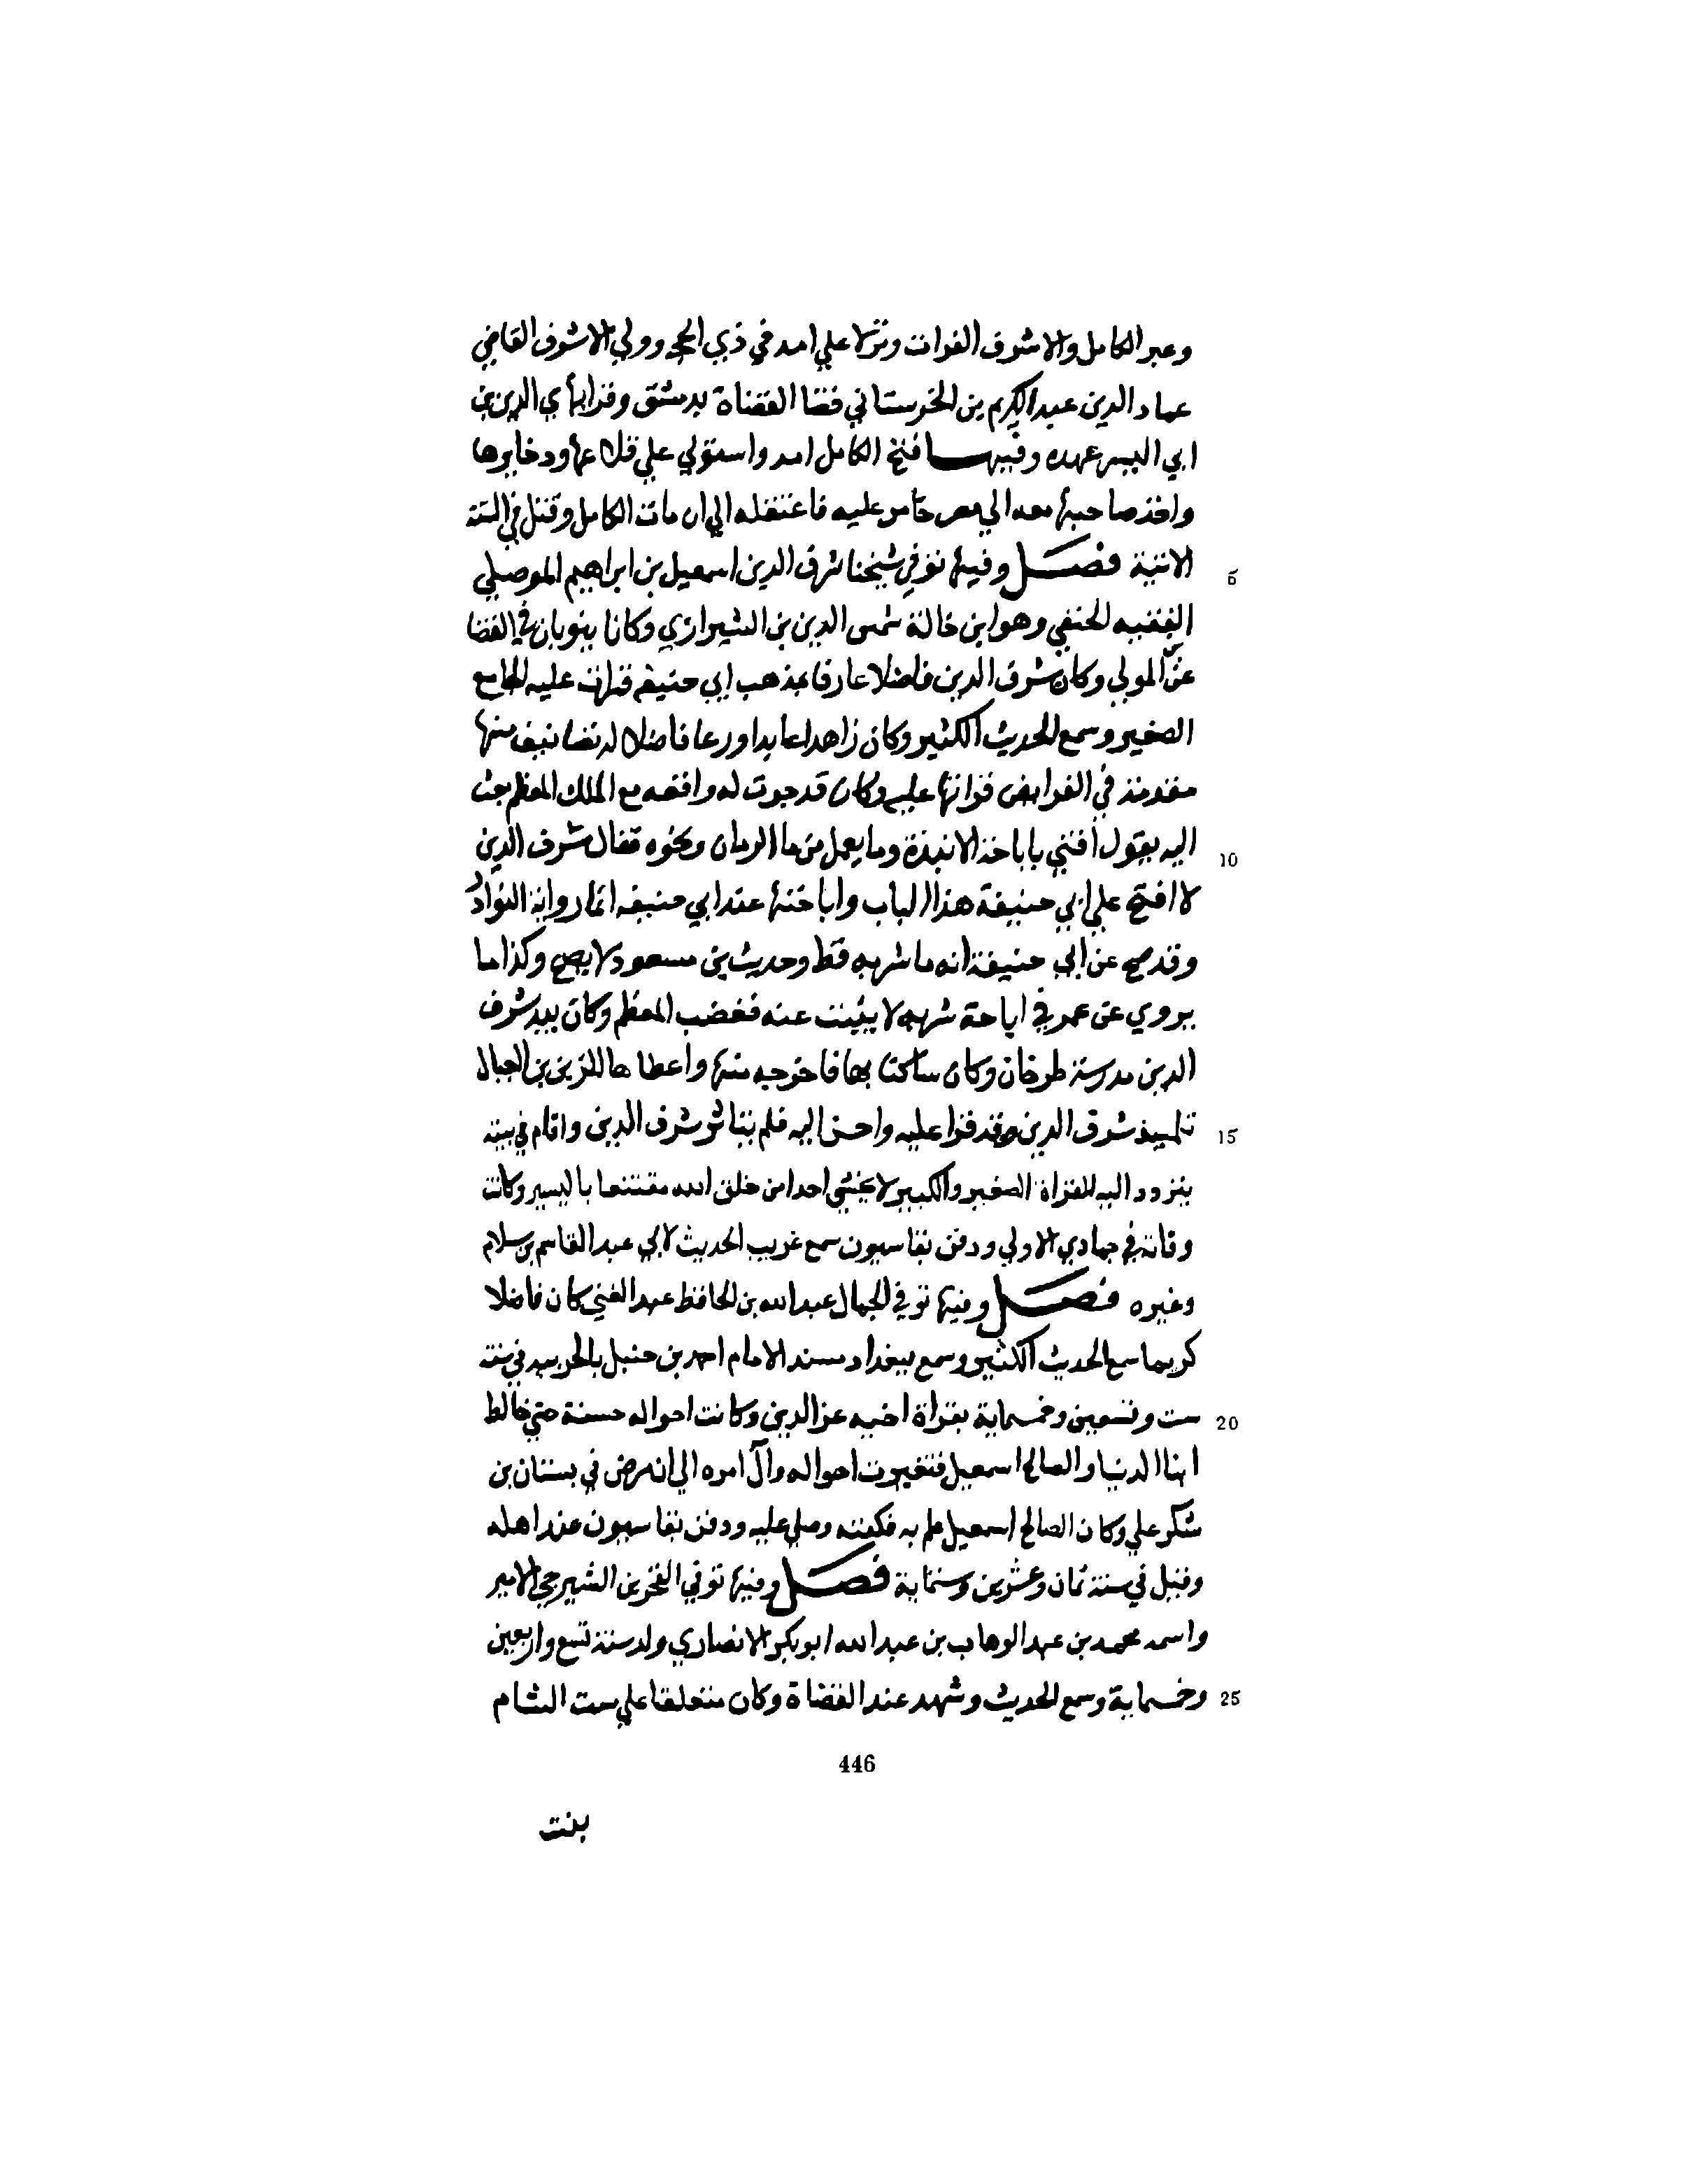 وعبر الكامل والاشرف الفرات ونزلا علي امد في ذي الحجه وولي الاشرف القاضي
عماد الدين عبد الكريم بن الخرستاني قضا القضاة بدمشق وقرا بهاي الدين بن
ابي اليسر عهده وفيهـــا فتح الكامل امد واستولي علي قلاعها ودخايرها
واخذ صاحبها معه الي مصر خامر عليه فاعتقله الي ان مات الكامل وقتل في السنة
5
الاتية فصـــل وفيها توفي شيخنا شرف الدين اسمعيل بن ابراهيم الموصلي
الفقيه الحنفي وهو ابن خالة شمس الدين بن الشيرازي وكانا ينوبان في القضا
عن المولي وكان شرف الدين فاضلا عارفا بمذهب ابي حنيفه قرات عليه الجامع
الصغير وسمع الحديث الكثير وكان زاهدا عابدا ورعا فاضلا له تصانيف منها
مقدمة في الفرايض قراتها عليه وكان قد جرت له واقعه مع الملك المعظم بعث
10
اليه يقول افتني باباحة الانبذة وما يعمل من ما الرمان ونحوه فقال شرف الدين
لا افتح علي ابي حنيفة هذا الباب واباحتها عند ابي حنيفه انما رواية النوادر
وقد صح عن ابي حنيفة انه ما شربه قط وحديث بن مسعود لا يصح وكذا ما
يروي عن عمر في اباحة شربه لا يثبت عنه فغضب المعظم وكان بيد شرف
الدين مدرسة طرخان وكان ساكنا بها فاخرجه منها واعطاها للزين بن العبال
15
تلميذ شرف الدين وقد قرا عليه واحسن اليه فلم يتاثر شرف الدين واقام في بيته
يتردد اليه للقراة الصغير والكبير لا يخشي احدا من خلق الله مقتنعا باليسير وكانت
وفاته في جمادي الاولي ودفن بقاسيون سمع غريب الحديث لابي عبد القاسم بن سلام
وغيره فصـــل وفيها توفي الجمال عبد الله بن الحافظ عبد الغني كان فاضلا
كريما سمع الحديث الكثير وسمع ببغداد مسند الامام احمد بن حنبل بالحربيه في سنة
20
ست وتسعين وخمسماية بقراة اخيه عز الدين وكانت احواله حسنة حتي خالط
ابنا الدنيا والصالح اسمعيل فتغيرت احواله وآل امره الي ان مرض في بستان بن
شكر علي وكان الصالح اسمعيل علم به فكفنه وصلي عليه ودفن بقاسيون عند اهله
وقيل في سنة ثمان وعشرين وستماية فصـــل وفيها توفي الفخر بن الشيرجي الامير
واسمه محمد بن عبد الوهاب بن عبد الله ابو بكر الانصاري ولد سنة تسع واربعين
25
وخمسماية وسمع الحديث وشهد عند القضاة وكان متعلقا علي ست الشام
446
بنت